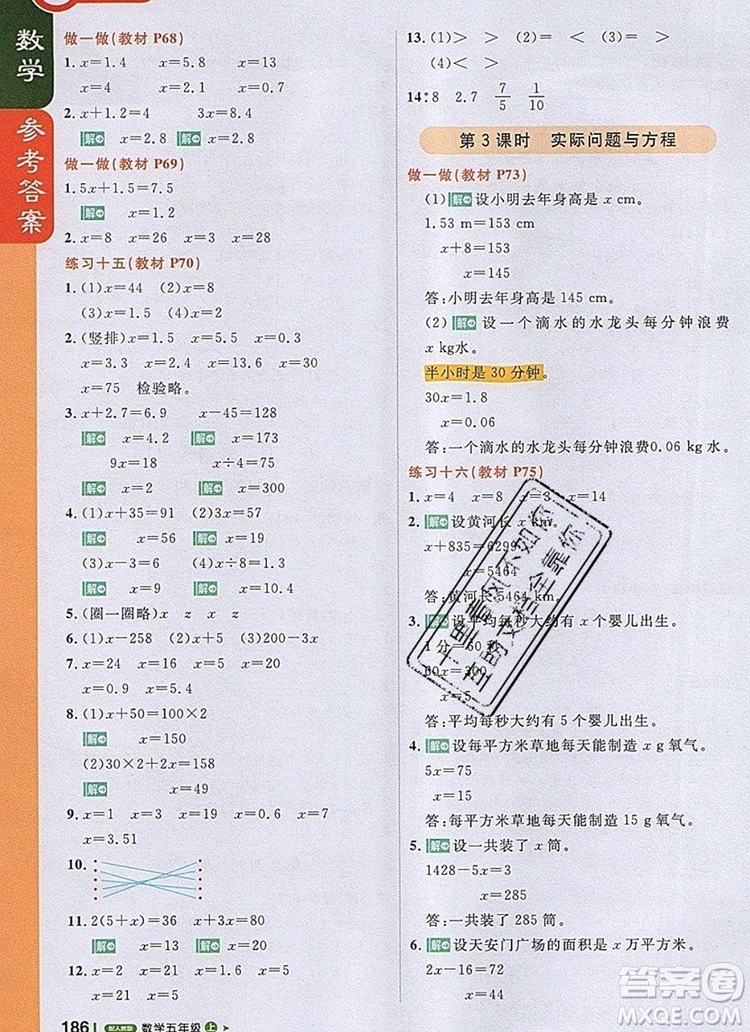 数学
参考答案
做一做(教材 P68)
1. x=1.4 x=5.8 x=13
x=4 x=80
2. x+1.2=4 3x=8.4
解 x=2.8 解 x=2.8
做一做(教材 P69)
1. 5x+1.5=7.5
解 x=1.2
2. x=8 x=26 x=3 x=28
练习十五(教材 P70)
1. (1)x=44 (2)x=8
(3)x=1.5 (4)x=2
2. (竖排)x=5.5 x=5 x=0.3
x=3.5 x=13.6 x=30
x=75 检验略。
3. x+2.7=6.9 x-45=128
解 x=4.2 解 x=173
9x=18 x÷4=75
解 x=2 解 x=300
4. (1)x+35=91 (2)3x=57
解 x=56 解 x=19
(3)x-6=24 (4)x÷8=1.3
解 x=30 解 x=10.4
5. (圈一圈略) x z x z
6. (1)x-258 (2)5x (3)200-3x
7. x=81 x=20 x=8
8. (1)x+50=100×2
解 x=150
(2)30×2+2x=158
解 x=49
9. x=1 x=3 x=1.6 x=7
x=3.51
10.
11. 2(5+x)=36 x+3x=80
解 x=13 解 x=20
12. x=2 x=21 x=15 x=12
186 配人教版 数学五年级 上
13. (1)> > (2)= = (3)< >
(4)< <
14. 8 2.7 7/5 1/10
第3课时 实际问题与方程
做一做(教材 P73)
(1) 解 设小明去年身高是 x cm。
1.53 m=153 cm
x+8=153
x=145
答:小明去年身高是 145 cm。
(2) 解 设一个滴水的水龙头每分钟浪费
x kg水。
半小时是30分钟。
30x=1.8
x=0.06
答:一个滴水的水龙头每分钟浪费0.06 kg水。
练习十六(教材 P75)
1. x=4 x=8 x=3 x=14
2. 解 设黄河长 x km。
x+835=6299
x=5464
答:黄河长 5464 km。
3. 解 设平均每秒大约有 x 个婴儿出生。
1分=60秒
60x=300
x=5
答:平均每秒大约有 5 个婴儿出生。
4. 解 设每平方米草地每天能制造 x g氧气。
5x=75
x=15
答:每平方米草地每天能制造 15 g氧气。
5. 解 设一共装了 x 筒。
1428-5x=3
x=285
答:一共装了 285 筒。
6. 解 设天安门广场的面积是 x 万平方米。
2x-16=72
x=44
答案圈
MXQE.COM